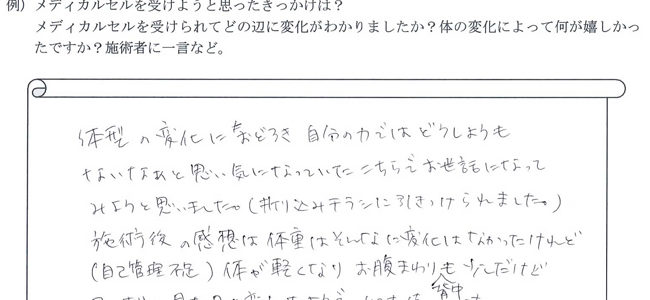 例）メディカルセルを受けようと思ったきっかけは？
メディカルセルを受けられてどの辺に変化がわかりましたか？体の変化によって何が嬉しかっ
たですか？施術者に一言など。
体型の変化におどろき 自分の力ではどうしようも
ないなぁと思い気になっていたこちらでお世話になって
みようと思いました。(折り込みチラシに引きつけられました。)
施術後の感想は体重はそんなに変化はなかったけれど
(自己管理不足) 体が軽くなりお腹まわりも少しだけど
背中